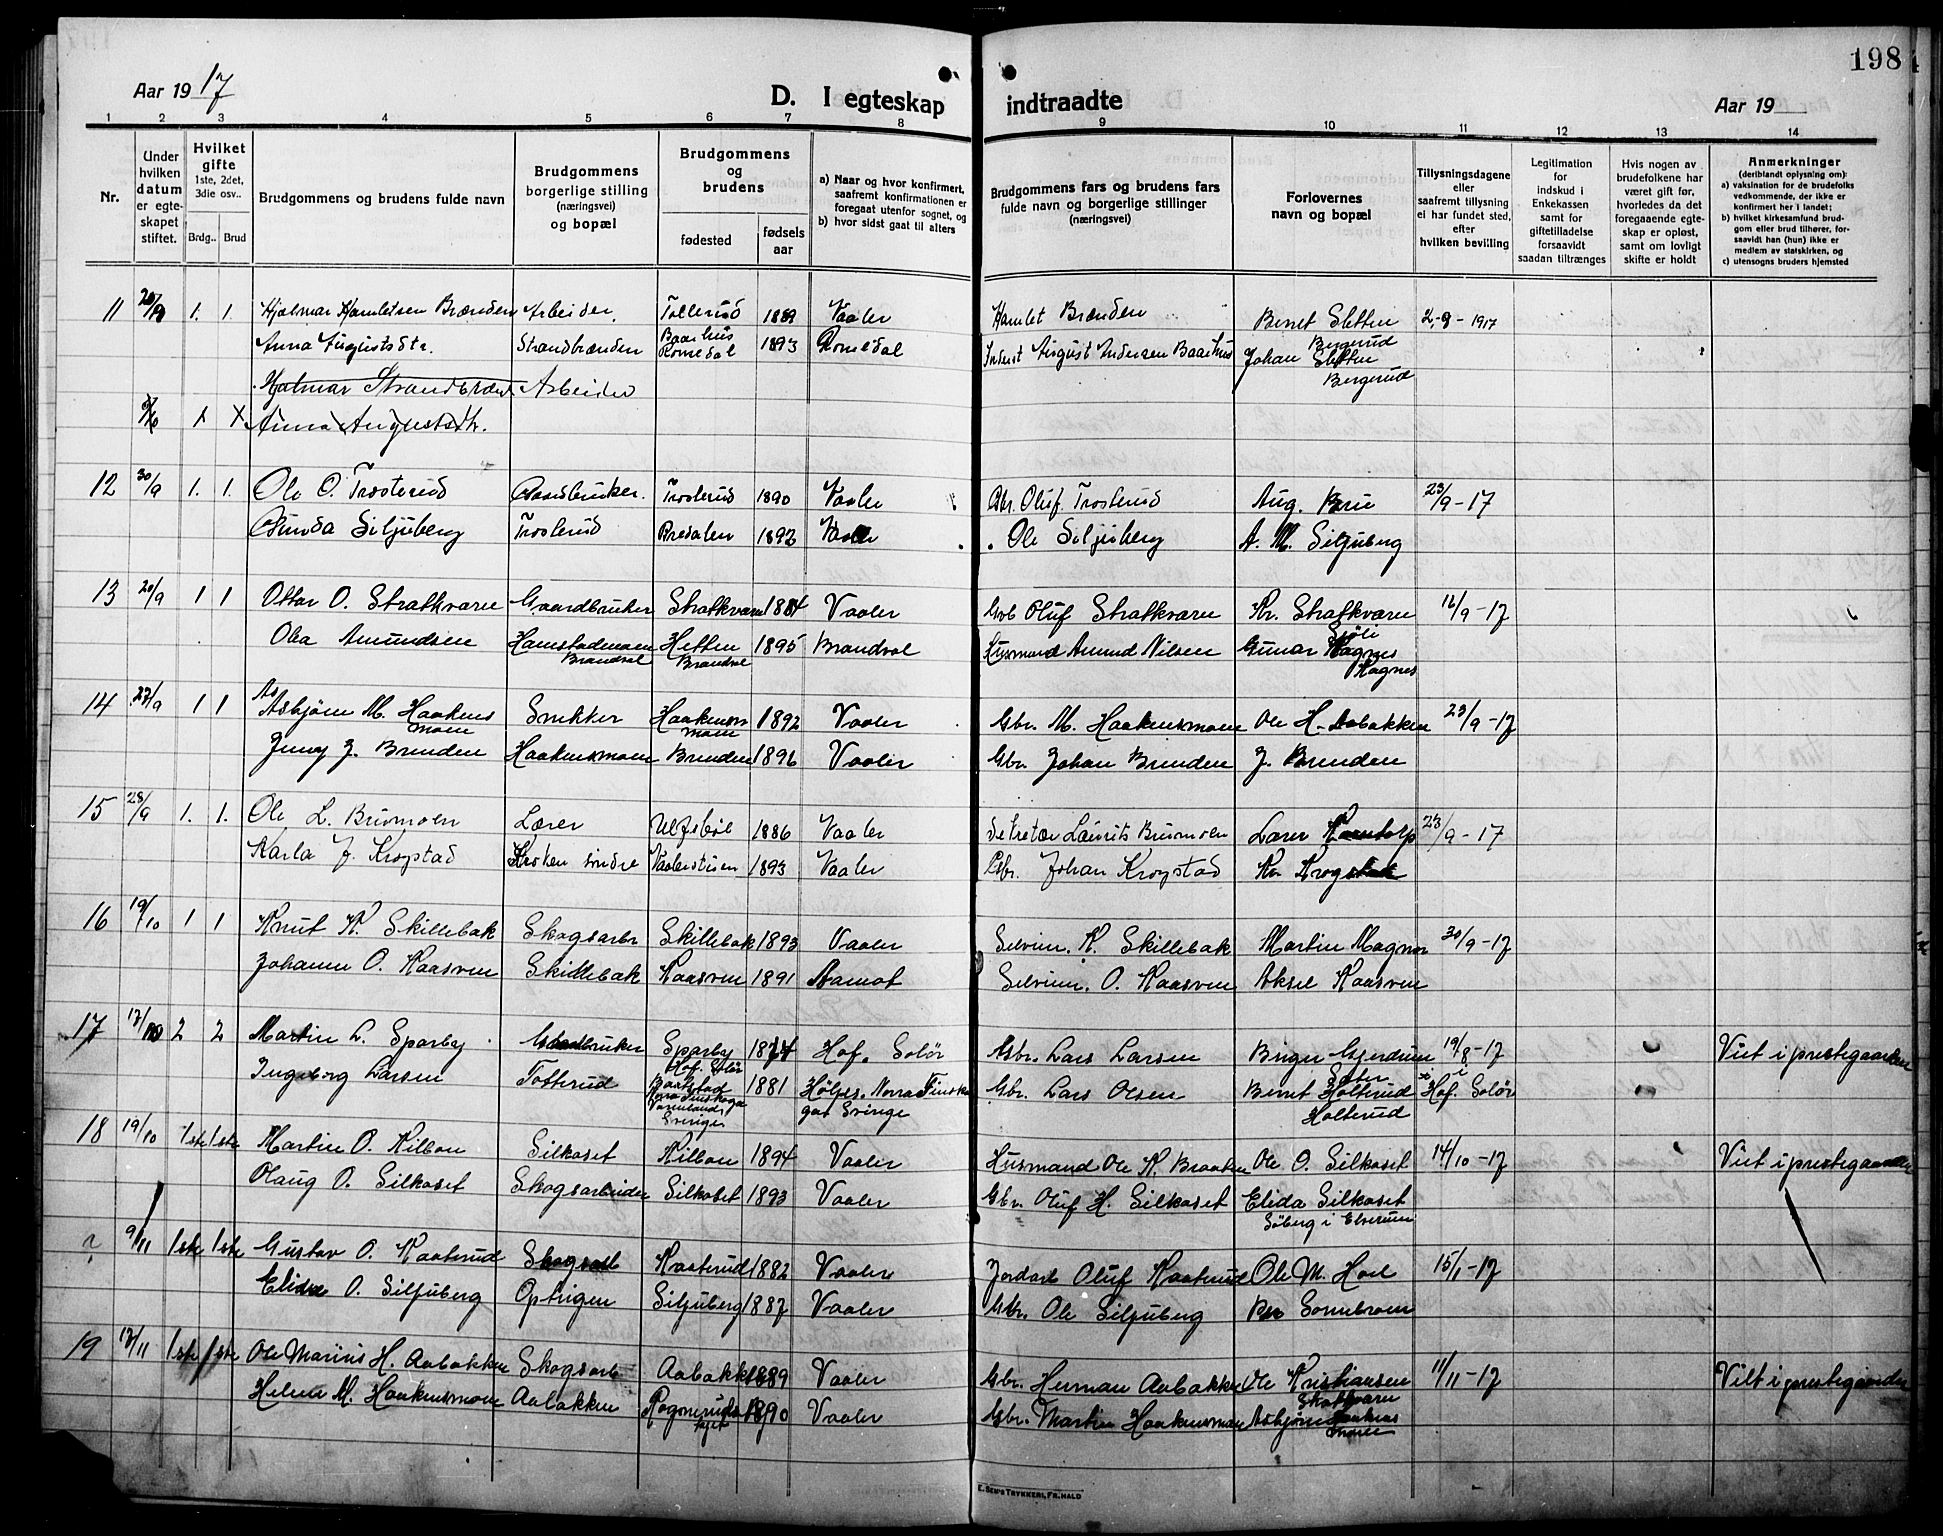 198
Aar 19 17
D. I egteskap indtraadte
Aar 19
1 2 3 4 5 6 7 8 9 10 11 12 13 14
Nr.
Under hvilken datum er egteskapet stiftet.
Hvilket gifte 1ste, 2det, 3die osv..
Brdg.. Brud
Brudgommens og brudens fulde navn
Brudgommens borgerlige stilling (næringsvei) og bopæl
Brudgommens og brudens
fødested
fødselsaar
a) Naar og hvor konfirmert, saafremt konfirmationen er foregaat utenfor sognet, og
b) hvor sidst gaat til alters
Brudgommens fars og brudens fars fulde navn og borgerlige stillinger (næringsvei)
Forlovernes navn og bopæl
Tillysningsdagene eller saafremt tillysning ei har fundet sted, efter hvilken bevilling
Legitimation for indskud i Enkekassen samt for giftetilladelse forsaavidt saadan tiltrænges
Hvis nogen av brudefolkene har været gift før, hvorledes da det foregaaende egteskap er opløst, samt om lovligt skifte er holdt
Anmerkninger (deriblandt oplysning om):
a) vaksination for de brudefolks vedkommende, der ikke er konfirmert her i landet;
b) hvilket kirkesamfund brudgom eller brud tilhører, forsaavidt han (hun) ikke er medlem av statskirken, og
c) utensogns bruders hjemsted
11 1. 1. Hjalmar Hamletsen Brænden Arbeider. Tollerud 1889 Vaaler Hamlet Brænden Bernt Sletten 2.-9-1917
Bergerud
Anna Augustsdtr. Strandbrænden Baarhus Romedal 1893 Romedal August Andersen Baarhus Johan Sletten
Bergerud
Hjalmar Strandbrænd Arbeider
Anna Augustsdtr.
12 30/9 1. 1. Ole O. Trosterud Gaardbruker. Trosterud 1890 Vaaler Gbr. Oluf Trosterud Aug. Brue 23/9-17
Gunda Siljuberg Trosterud Bredalen 1892 Vaaler Ole Siljuberg A. M. Siljuberg
13 20/9 1 1 Ottar O. Stratkværn Gaardbruker Stratkværn Vaaler Gbr Oluf Stratkværn Kr. Stratkværn 16/9-17
Olea Amundsen Hamstadmoen Brandvol Hetten Brandvol 1895 Brandvol Husmand Amund Nilsen Gunar Kagnes
Kagnes
14 27/9 1 1 Asbjørn M. Haakensmoen Snikker Haakensmoen 1892 Vaaler Gbr. M. Haakensmoen Ole H. Aabakken 23/9-17
Jenny J. Brenden Haakensmoen Brenden 1896 Vaaler Gbr. Johan Brenden J. Brenden
15 28/9 1. 1. Ole L. Brumoen Lærer Ulfsbøl 1886 Vaaler Sekretær Laurits Brumoen Lærer 23/9-17
Karla J. Krogstad Kroken søndre 1893 Vaaler Gbr. Johan Krogstad Kr. Krogstad
16 19/10 1 1 Knut K. Skillebak Skogsarbr Skillebak 1893 Vaaler Selveier. K. Skillebak Martin Magnor 30/9-17
Johanne O. Kaasven Skillebak Kaasven 1891 Aamot Selveier. O. Kaasven Aksel Kaasven
17 2 2 Martin L. Sparby Gaardbruker Sparby Hof. Solør Hof. Solør Gbr. Lars Larsen Birger Gjerdrum 19/8-17 Viet i prestegaarden
Ingeborg Larsen Totterud Norra Finskoga Værmland Sverige 1881 Höljes. Norra Finskoga Sverige Gbr. Lars Olsen Bernt Holterud Holterud i Hof. Solør
18 19/10 1ste 1ste Martin O. Kilbon Silkoset Kilbon 1894 Vaaler Husmand Ole K. Braaten Ole O. Silkoset 14/10-17 Viet i prestegaarden
Olaug O. Silkoset Skogsarbeider Silkoset 1893 Vaaler Gbr. Oluf H. Silkoset Elida Silkoset
Søberg i Elverum
? 9/11 1ste 1ste Gustav O. Kaaterud Skogsarb Kaaterud 1882 Vaaler Jordarb Oluf Kaaterud Ole M. Hoel 15/1-17
Elidæ O. Siljuberg Optrigen Siljuberg 1887 Vaaler Gbr. Ole Siljuberg
19 17/11 1ste 1ste Ole Marius H. Aabakken Skogsarb Aabakken 1889 Vaaler Gbr. Herman Aabakken Ole Kristiansen 11/11-17 Viet i prestegaarden
Stratkværn
Helene M. Haakensmoen Aabakken 1890 Vaaler Gbr. Martin Haakensmoen Asbjørn Haakensmoen
E. SEM'S TRYKKERI, FR.HALD